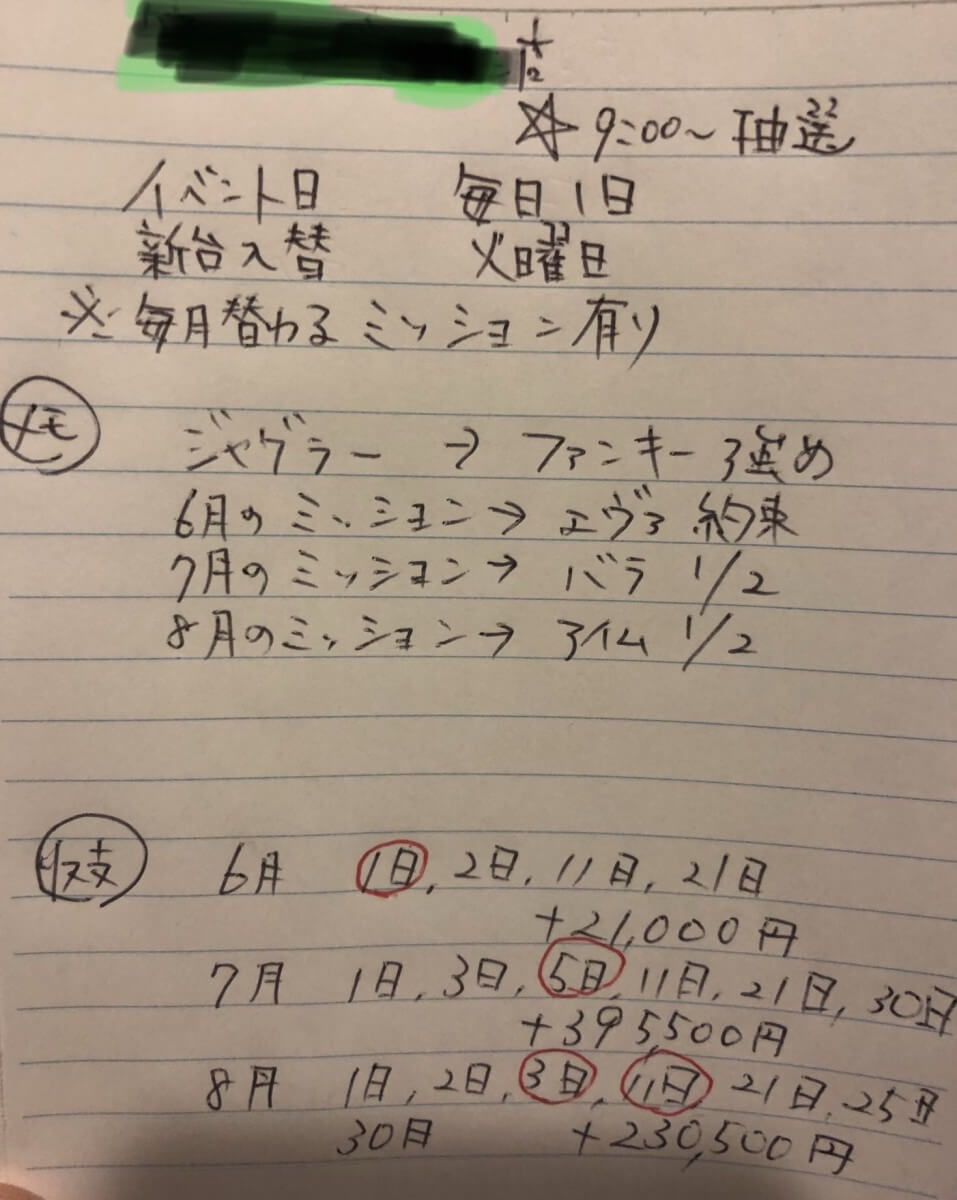 ☆ 9:00〜抽選
イベント日 毎日1日
新台入替 火曜日
※毎月替わるミッション有り
メモ ジャグラー → ファンキー3強め
6月のミッション→ エヴァ 約束
7月のミッション→ バラ 1/2
8月のミッション→ アイム 1/2
収支 6月 1日, 2日, 11日, 21日
+21,000円
7月 1日, 3日, 5日, 11日, 21日, 30日
+395,500円
8月 1日, 2日, 3日, 11日, 21日, 25日
30日 +230,500円